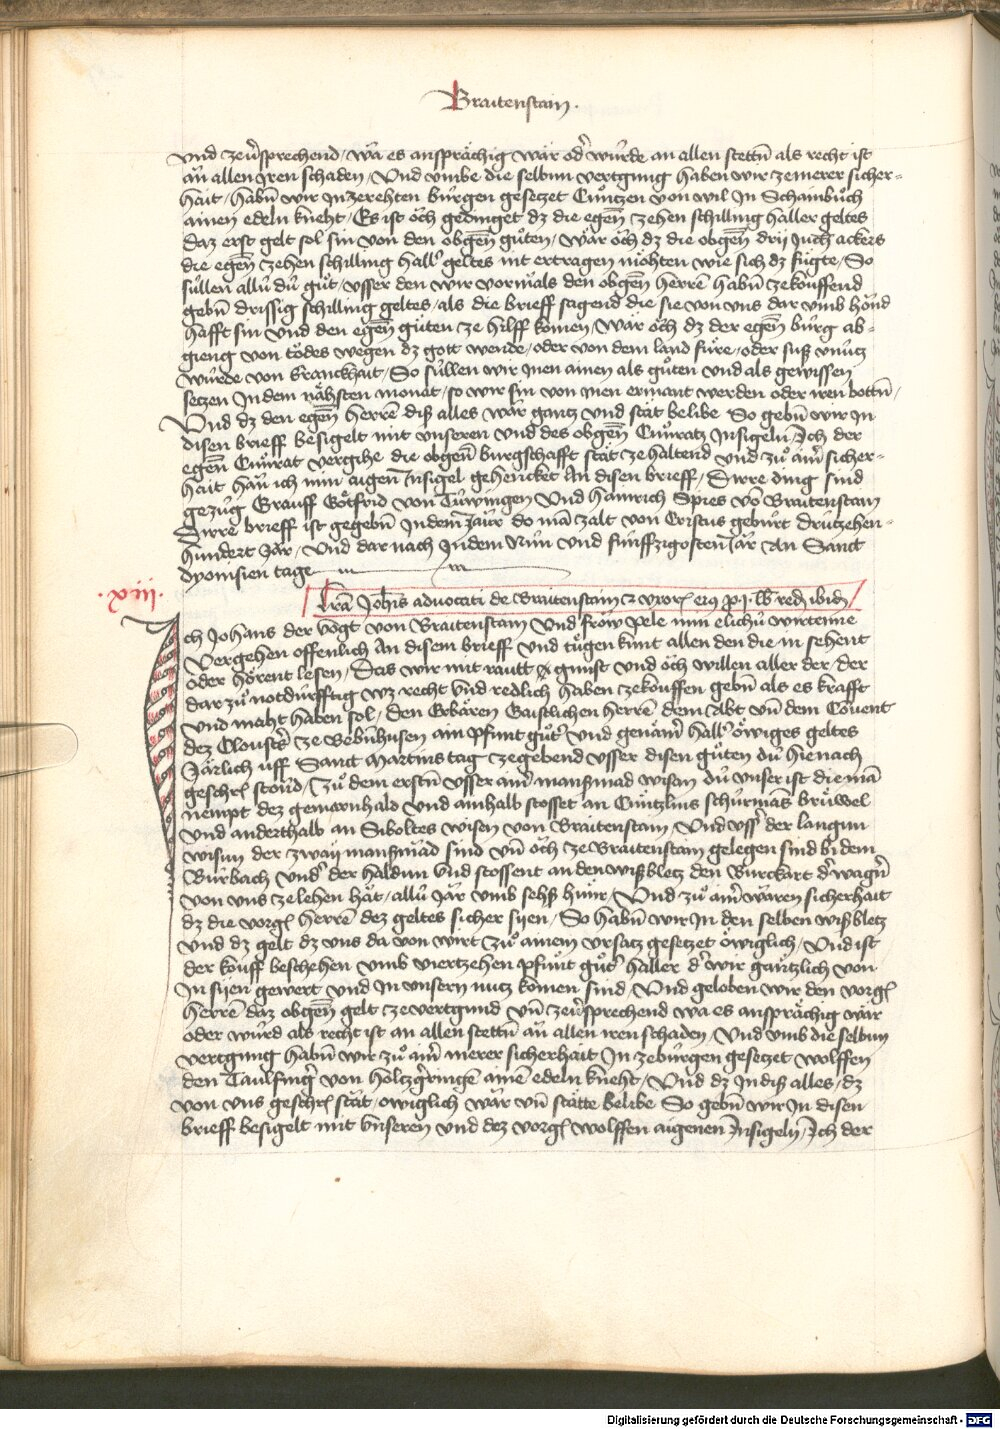 Braitenstain.
vnd zeu̍sprechend / wa es anspra̍chig wa̍r od̍ wu̍rde an allen stettn̄ als recht ist
an̍ allen Jren schaden / Vnd vmbe die selbun vertgung haben wir ze merer sicher=
hait / habn̄ wir Jn zerehten bürgen gesetzet Cůntzen von wil Jn Schainbůch
ainen edeln kneht / Es ist o̍ch gedinget dz die egen̄ zehen schilling haller geltes
daz erst gelt sol sin von den obgen̄ gůten / wa̍r o̍ch dz die obgen̄ drij Juch ackers
die egen̄ zehen schilling hall̍ geltes nit ertragen mo̍hten wie sich dz fůgte / So
su̍llen allu̍ du̍ gůt / vsser den wir vormals den obgen̄ herren̄ habn̄ zekouffend
gebn̄ drissig schilling geltes / als die brieff sagend die sie von vns dar vmb hond
hafft sin vnd den egen̄ gůten ze hilff komen / wa̍r o̍ch dz der egen̄ bu̍rg ab=
gieng von todes wegen dz gott wende / oder von dem land fu̍re / oder suß vnutz
wu̍rde von kranckhait / So su̍llen wir Jnen ainen als gůten vnd als gewissen
setzen Jn dem na̍hsten monat / so wir sin von Jnen ermant werden oder iren bottn̄ /
Vnd dz den egen̄ herrē diß alles wa̍r gantz vnd sta̍t belibe So gebn̄ wir Jn
disen brieff besigelt mit vnseren vnd des obgen̄ Cůnratz Jnsigeln / Jch der
egen̄ Cůnrat vergihe die obgen̄ burgschafft sta̍t ze haltend vnd zů aim̍ sicher=
hait han̍ ich min aigen Jnsigel gehencket An disen brieff / Dirre ding sind
gezu̍g Grauff Go̍tfrid von Tu̍wingen Vnd Hainrich Spies vō Braitenstain
Dirre brieff ist gegebn̄ Jn dem Jaur do mā zalt von Cristus geburt dru̍zehen=
hundert Jar / Vnd dar nach Jn dem Nu̍n vnd fu̍nffzigosten Jar An Sanct
dyonisien tage
.xiij. Lr̄a Joh̄is advocati de Braitenstain ⁊ vxor̄ ei9 ꝓ .j. lb red̄ ibid̄
Jch Johans der vogt von Braitenstain Vnd fro̍w Pele min elichu̍ wirtenne
Vergehen offenlich An disem brieff vnd tůgen kunt allen den die in sehent
oder ho̍rent lesen / Das wir mit rautt gunst vnd o̍ch willen aller der / der
dar zů notdu̍rfftig wz recht vnd redlich haben zekouffen gebn̄ als es krafft
vnd maht haben sol / den Erba̍ren Gaistlichen herrē dem Abt vn̄ dem Couent
dez Closters̍ ze Bebn̄husen ain pfunt gu̍t̍ vnd gena̍m̍ hall̍ o̍wiges geltes
Ja̍rlich vff Sanct Martins tag zegebend vsser disen gůten du̍ hie nach
geschr̄ stond / Zů dem erstn̄ vsser aim̍ manßmad wisan du̍ vnser ist die mā
nempt dez gemernhald vnd ainhalb stosset an Cůntzlins schu̍rmās bru̍wel
vnd anderthalb an Siboltes wisen von Braitenstain / Vnd vss̍ der langun
wisun der zwaij manßmad sind vn̄ o̍ch ze Braitenstain gelegen sind bi dem
Bu̍rbach vnd̍ der haldun vnd stossent an den wißbletz den Burckart d̍ wagn̍
von vns ze lehen ha̍t / allu̍ Jar vmb sehß hu̍nr / Vnd zů aim̍ waren sicherhait
dz die vorg̃ herrē dez geltes sicher sijen / So habn̄ wir Jn den selben wißbletz
vnd dz gelt dz vns da von wirt zů ainem vrsatz gesetzet o̍wiglich / Vnd ist
der kouff beschehen vmb viertzehen pfunt gůt̍ haller d̍ wir gantzlich von
Jn sijen gewert vnd Jn vnsern nutz komen sind Vnd geloben wir den vorg̃
herrē daz obgen̄ gelt ze vertgund vn̄ zeu̍sprechend wa es anspra̍chig wa̍r
oder wu̍rd als recht ist an allen stettn̄ an̍ allen iren schaden / Vnd vmb die selbun
vertgung habn̄ wir zů aim̍ merer sicherhait Jn zebu̍rgen gesetzet wolffen
den Taulfing̍ von holtzg̍ringē ainē edeln kneht / Vnd dz Jn diß alles / dz
von vns geschr̄ stat / owiglich wa̍r vn̄ sta̍tte belibe So gebn̄ wir Jn disen
brieff besigelt mit vnseren vnd dez vorg̃ wolffen aigenen Jnsigeln / Jch der
Digitalisierung gefördert durch die Deutsche Forschungsgemeinschaft - DFG